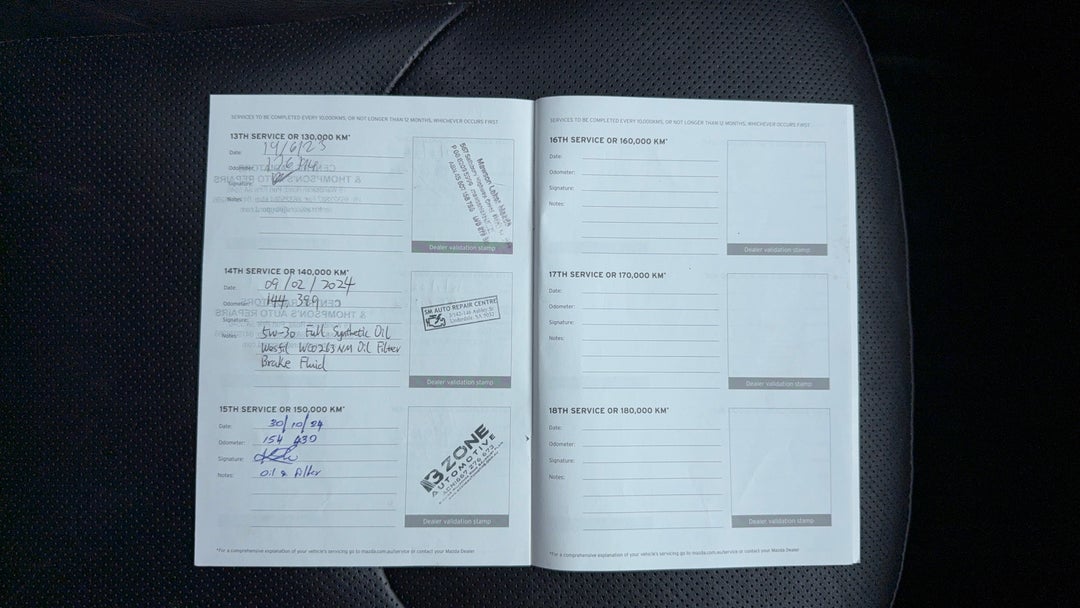 SERVICES TO BE COMPLETED EVERY 10,000KMS, OR NOT LONGER THAN 12 MONTHS, WHICHEVER OCCURS FIRST
13TH SERVICE OR 130,000 KM*
Date: 19/6/23
Odometer:
Signature:
Notes:
Mawson Lakes Mazda
Dealer validation stamp
14TH SERVICE OR 140,000 KM*
Date: 09/02/2024
Odometer: 144 389
Signature:
Notes: 5W-30 Full Synthetic Oil
Wesfil WCO263NM Oil Filter
Brake Fluid
SM AUTO REPAIR CENTRE
Dealer validation stamp
15TH SERVICE OR 150,000 KM*
Date: 30/10/24
Odometer: 154 430
Signature:
Notes: Oil & filter
ZONE
AUTOMOTIVE
Dealer validation stamp
*For a comprehensive explanation of your vehicle's servicing go to mazda.com.au/service or contact your Mazda Dealer
SERVICES TO BE COMPLETED EVERY 10,000KMS, OR NOT LONGER THAN 12 MONTHS, WHICHEVER OCCURS FIRST
16TH SERVICE OR 160,000 KM*
Date:
Odometer:
Signature:
Notes:
Dealer validation stamp
17TH SERVICE OR 170,000 KM*
Date:
Odometer:
Signature:
Notes:
Dealer validation stamp
18TH SERVICE OR 180,000 KM*
Date:
Odometer:
Signature:
Notes:
Dealer validation stamp
*For a comprehensive explanation of your vehicle's servicing go to mazda.com.au/service or contact your Mazda Dealer